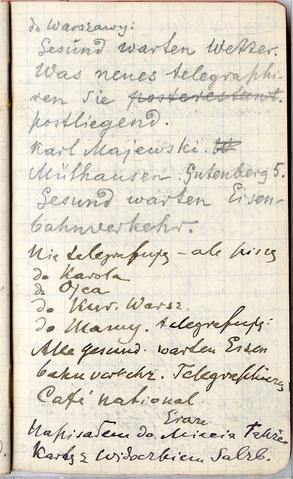 do Warszawy:
Gesund warten Wetter.
Was neues telegraphi-
ren Sie posterestant.
postliegend.
Karl Majewski.
Mülhausen. Gutenberg 5.
Gesund warten Eisen-
bahnverkehr.
Nie telegrafuję – ale piszę
do Karola
do Ojca
do Kur. Warsz.
do Mamy. telegrafuję:
Alle gesund. warten Eisen
bahnverkehr. Telegraphieren
Café national.
Napisałem do Miecia
Kartę z widoczkiem Salzb.